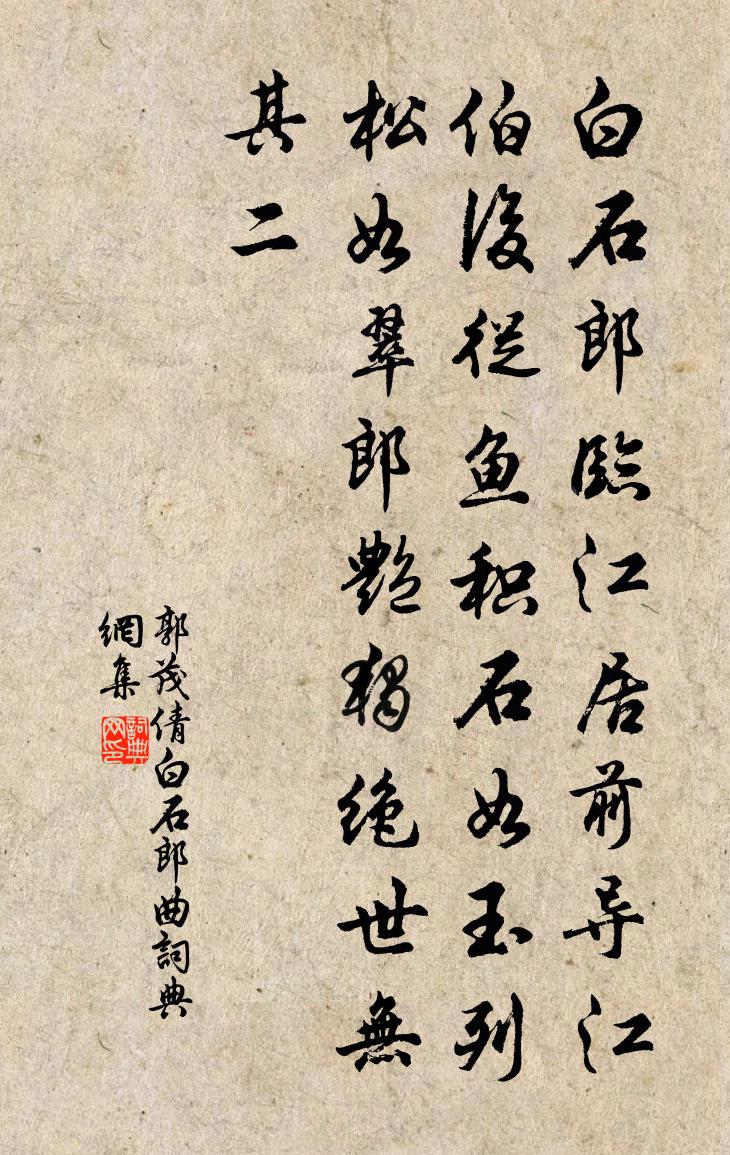 白石郎臨江居前导江
伯後從鱼积石如玉列
松如翠郎艷独绝世無
其二
郭茂倩白石郎曲詞典
網集
詞典
网印